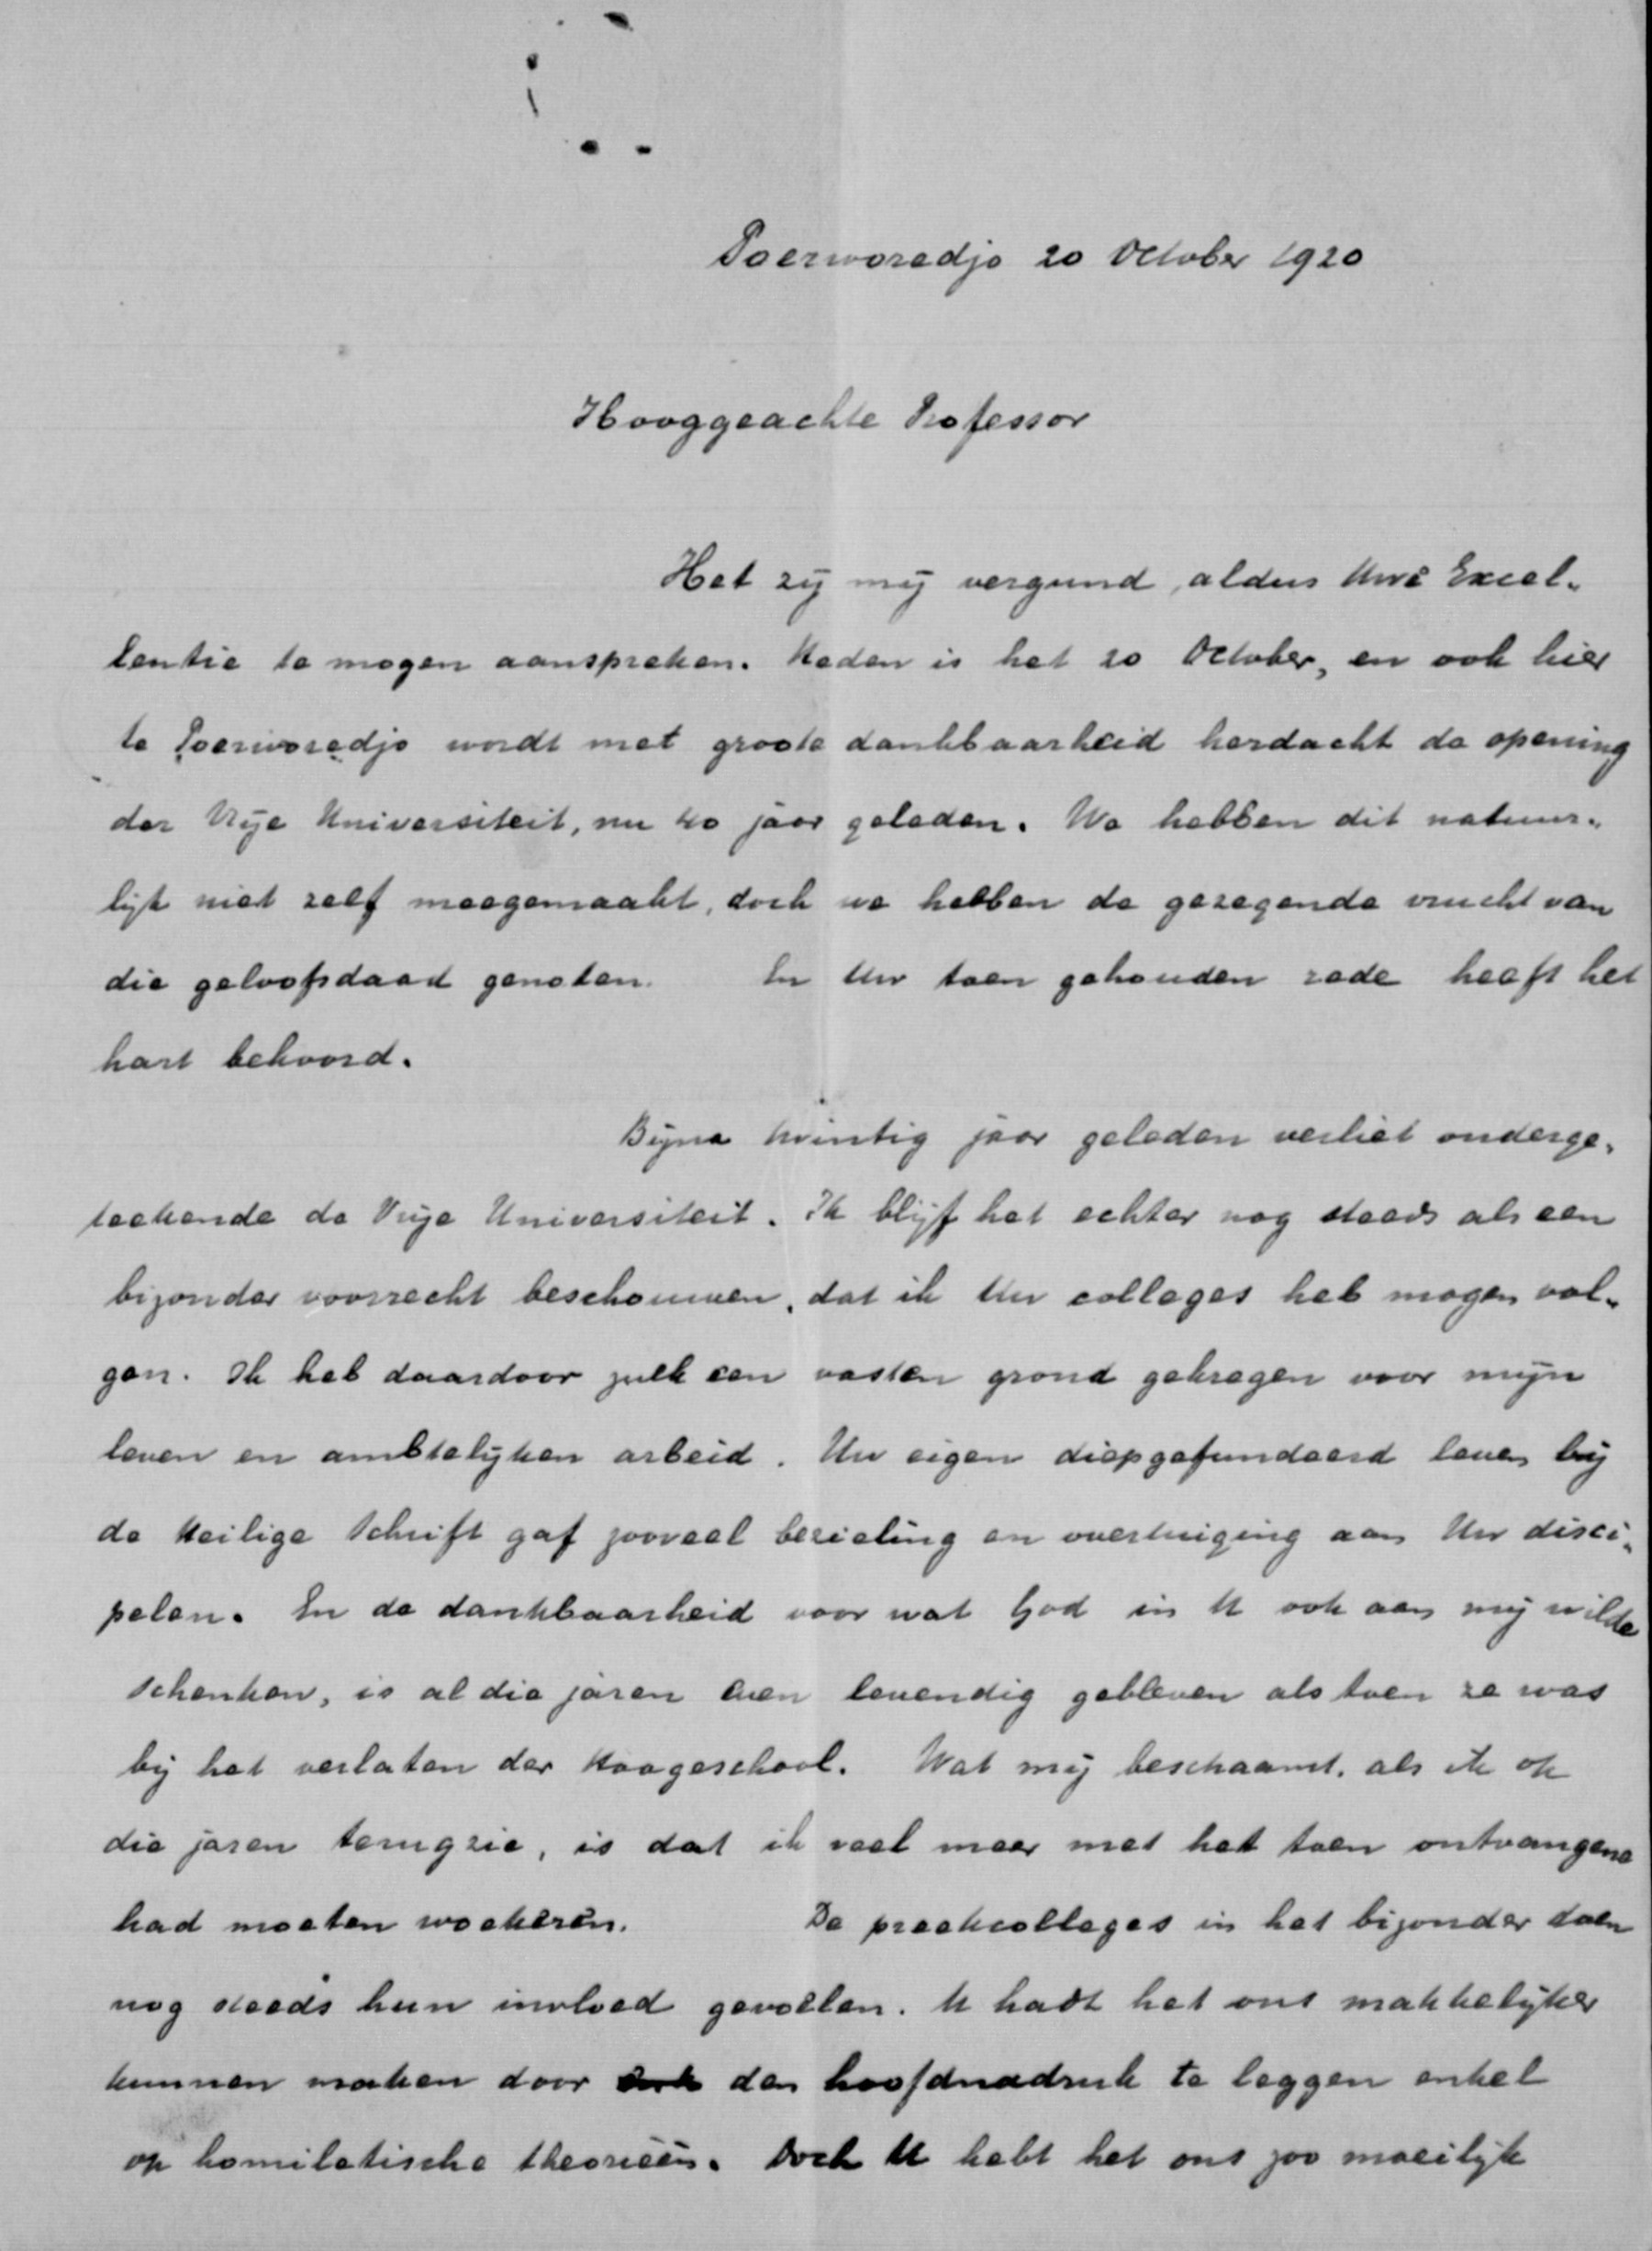 Poerworedjo 20 October 1920
Hooggeachte Professor
Het zij mij vergund, aldus Uwe Excel-
lentie te mogen aanspreken. Heden is het 20 October, en ook hier
te Poerworedjo wordt met groote dankbaarheid herdacht de opening
der Vrije Universiteit, nu 40 jaar geleden. We hebben dit natuur-
lijk niet zelf meegemaakt, doch we hebben de gezegende vrucht van
die geloofsdaad genoten. En Uw toen gehouden rede heeft het
hart bekoord.
Bijna twintig jaar geleden verliet onderge-
teekende de Vrije Universiteit. Ik blijf het echter nog steeds als een
bizonder voorrecht beschouwen, dat ik Uw colleges heb mogen vol-
gen. Ik heb daardoor zulk een vasten grond gekregen voor mijn
leven en ambtelijken arbeid. Uw eigen diepgefundeerd leven bij
de Heilige Schrift gaf zooveel bezieling en overtuiging aan Uw disci-
pelen. En de dankbaarheid voor wat God in U ook aan mij wilde
schenken, is al die jaren even levendig gebleven als toen ze was
bij het verlaten der Hoogeschool. Wat mij beschaamt, als ik op
die jaren terugzie, is dat ik veel meer met het toen ontvangene
had moeten woekeren. De preekcolleges in het bizonder doen
nog steeds hun invloed gevoelen. U hadt het ons makkelijker
kunnen maken door den hoofdnadruk te leggen enkel
op homiletische theorieën. Doch U hebt het ons zoo moeilijk